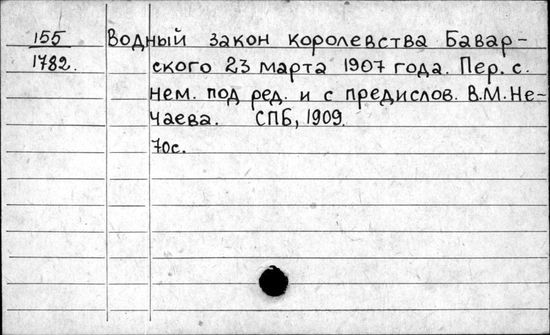 155 Водный закон королевства Бавар-
1782. ского 23 марта 1907 года. Пер. с.
нем. под ред. и с предислов. В.М. Не-
чаева. СПБ, 1909.
70с.